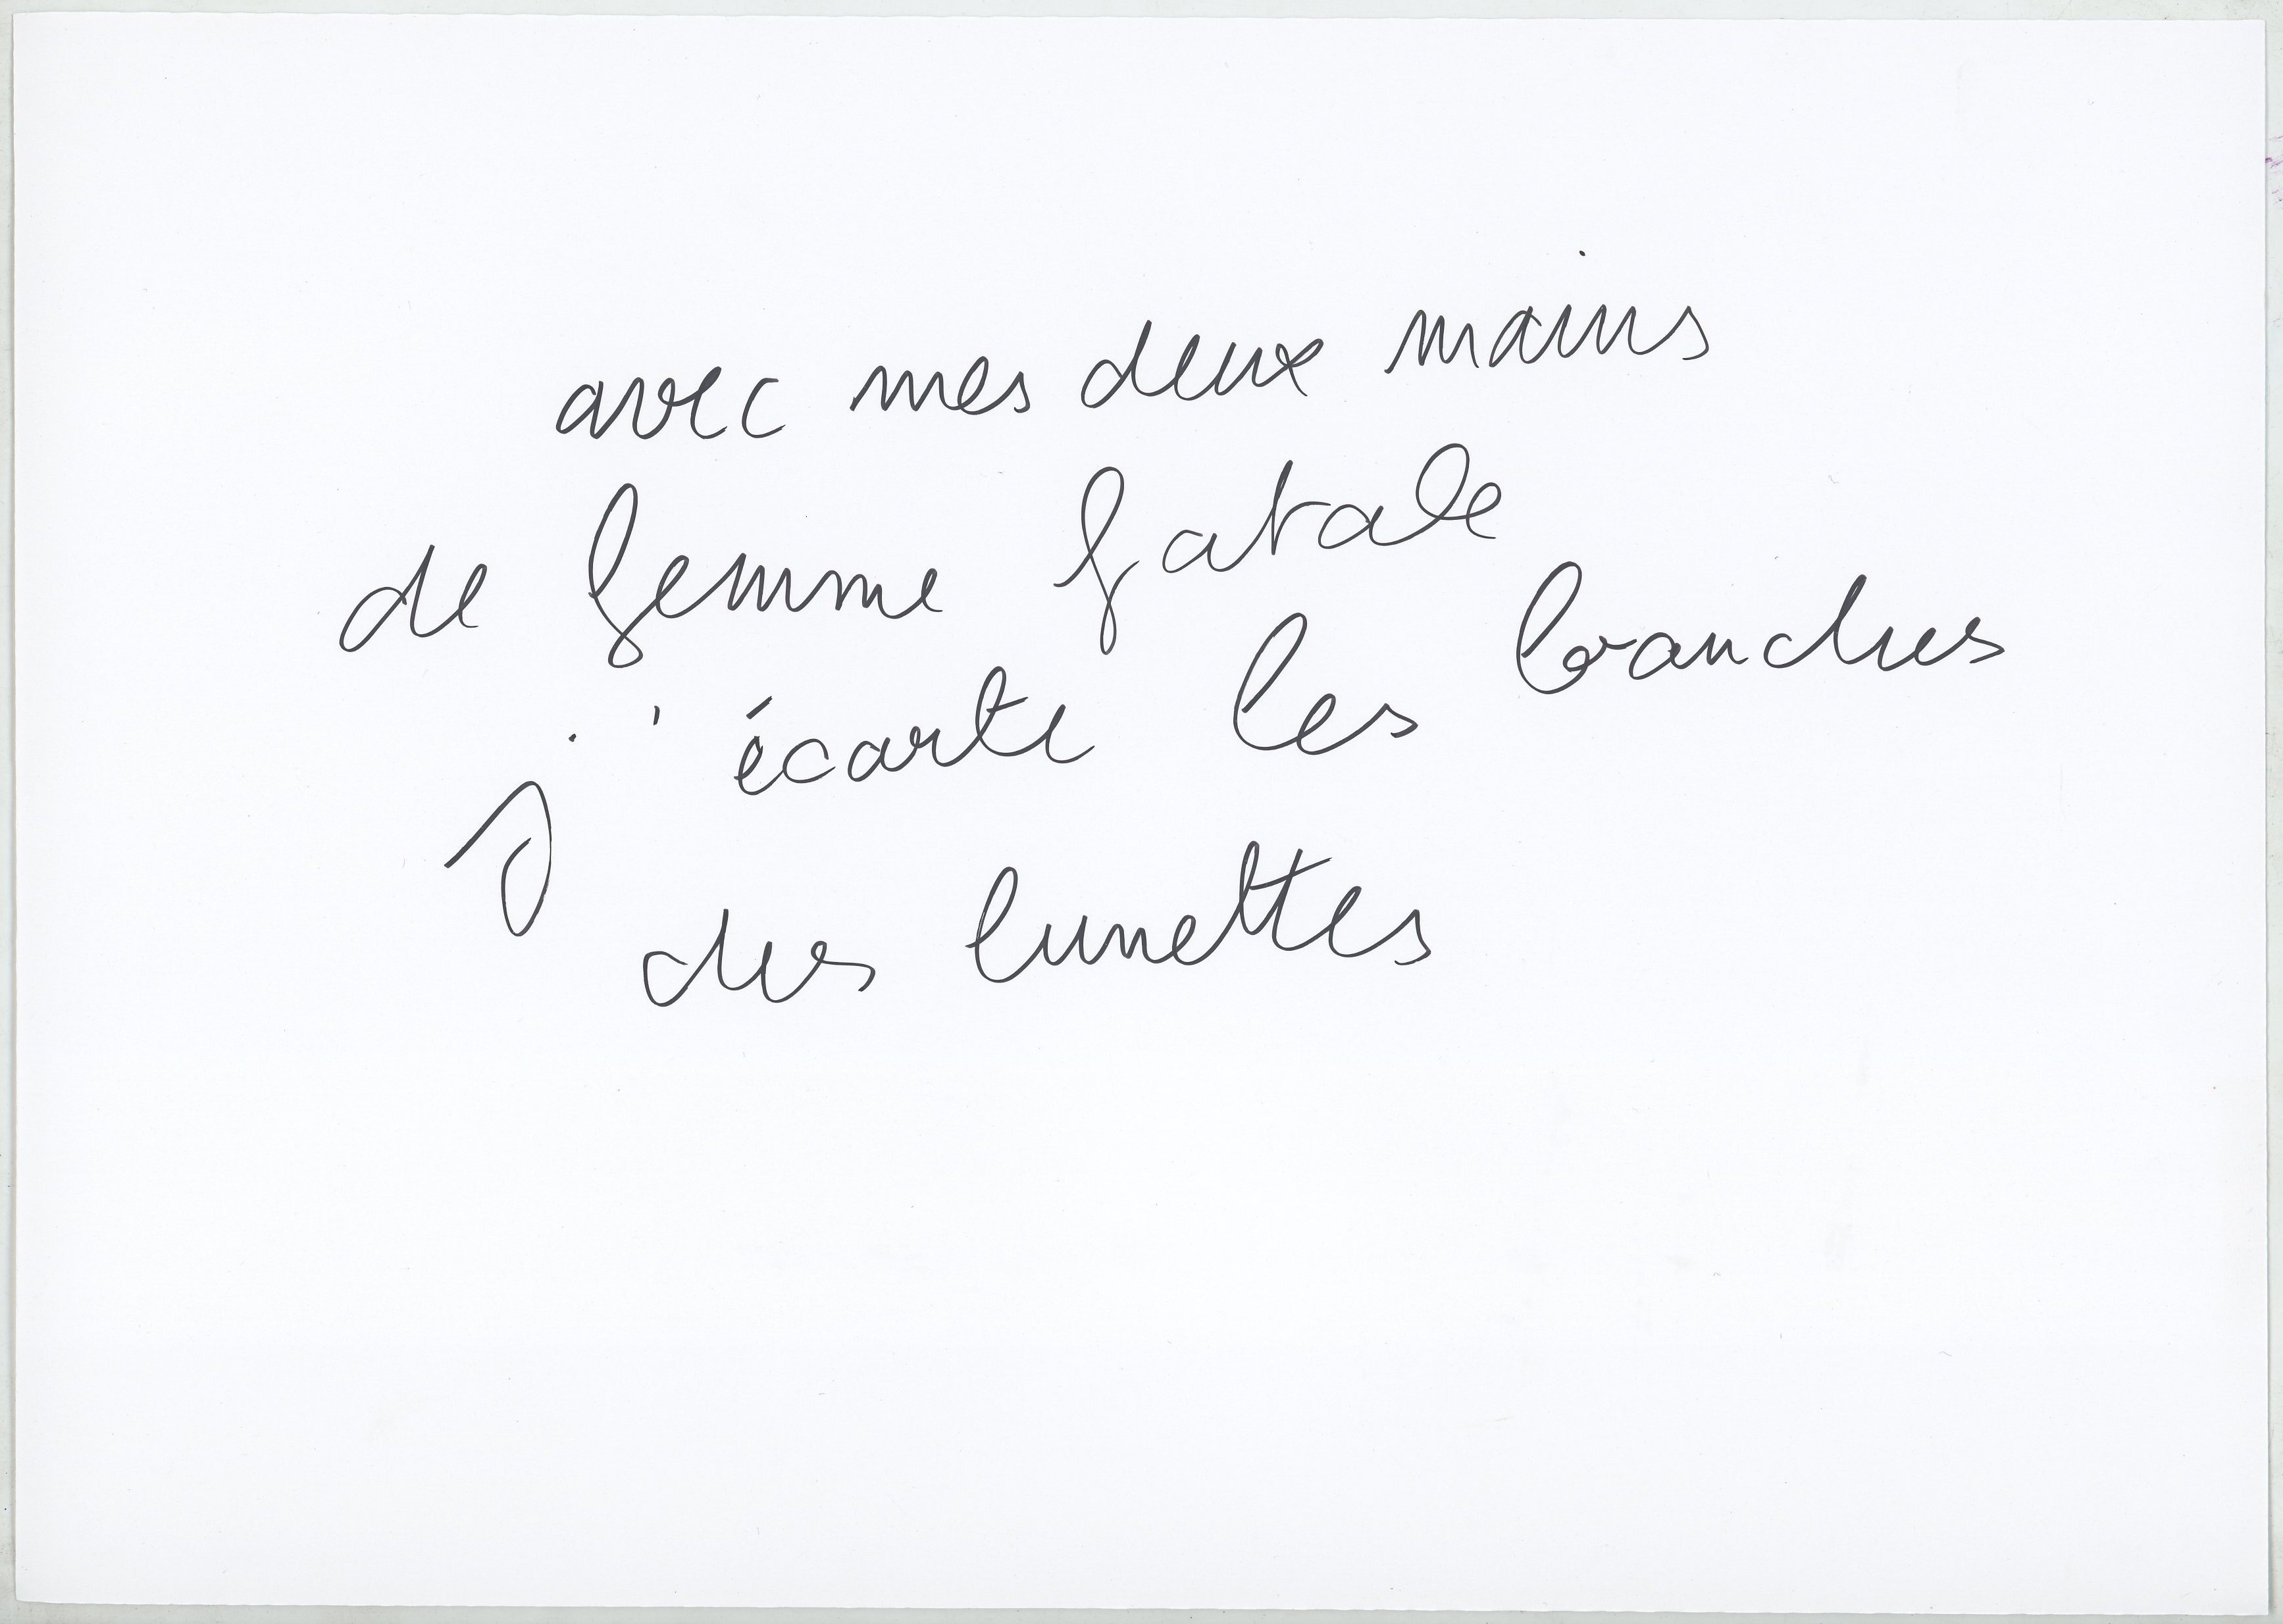 avec mes deux mains
de femme fatale
j'écarte les branches
des lunettes